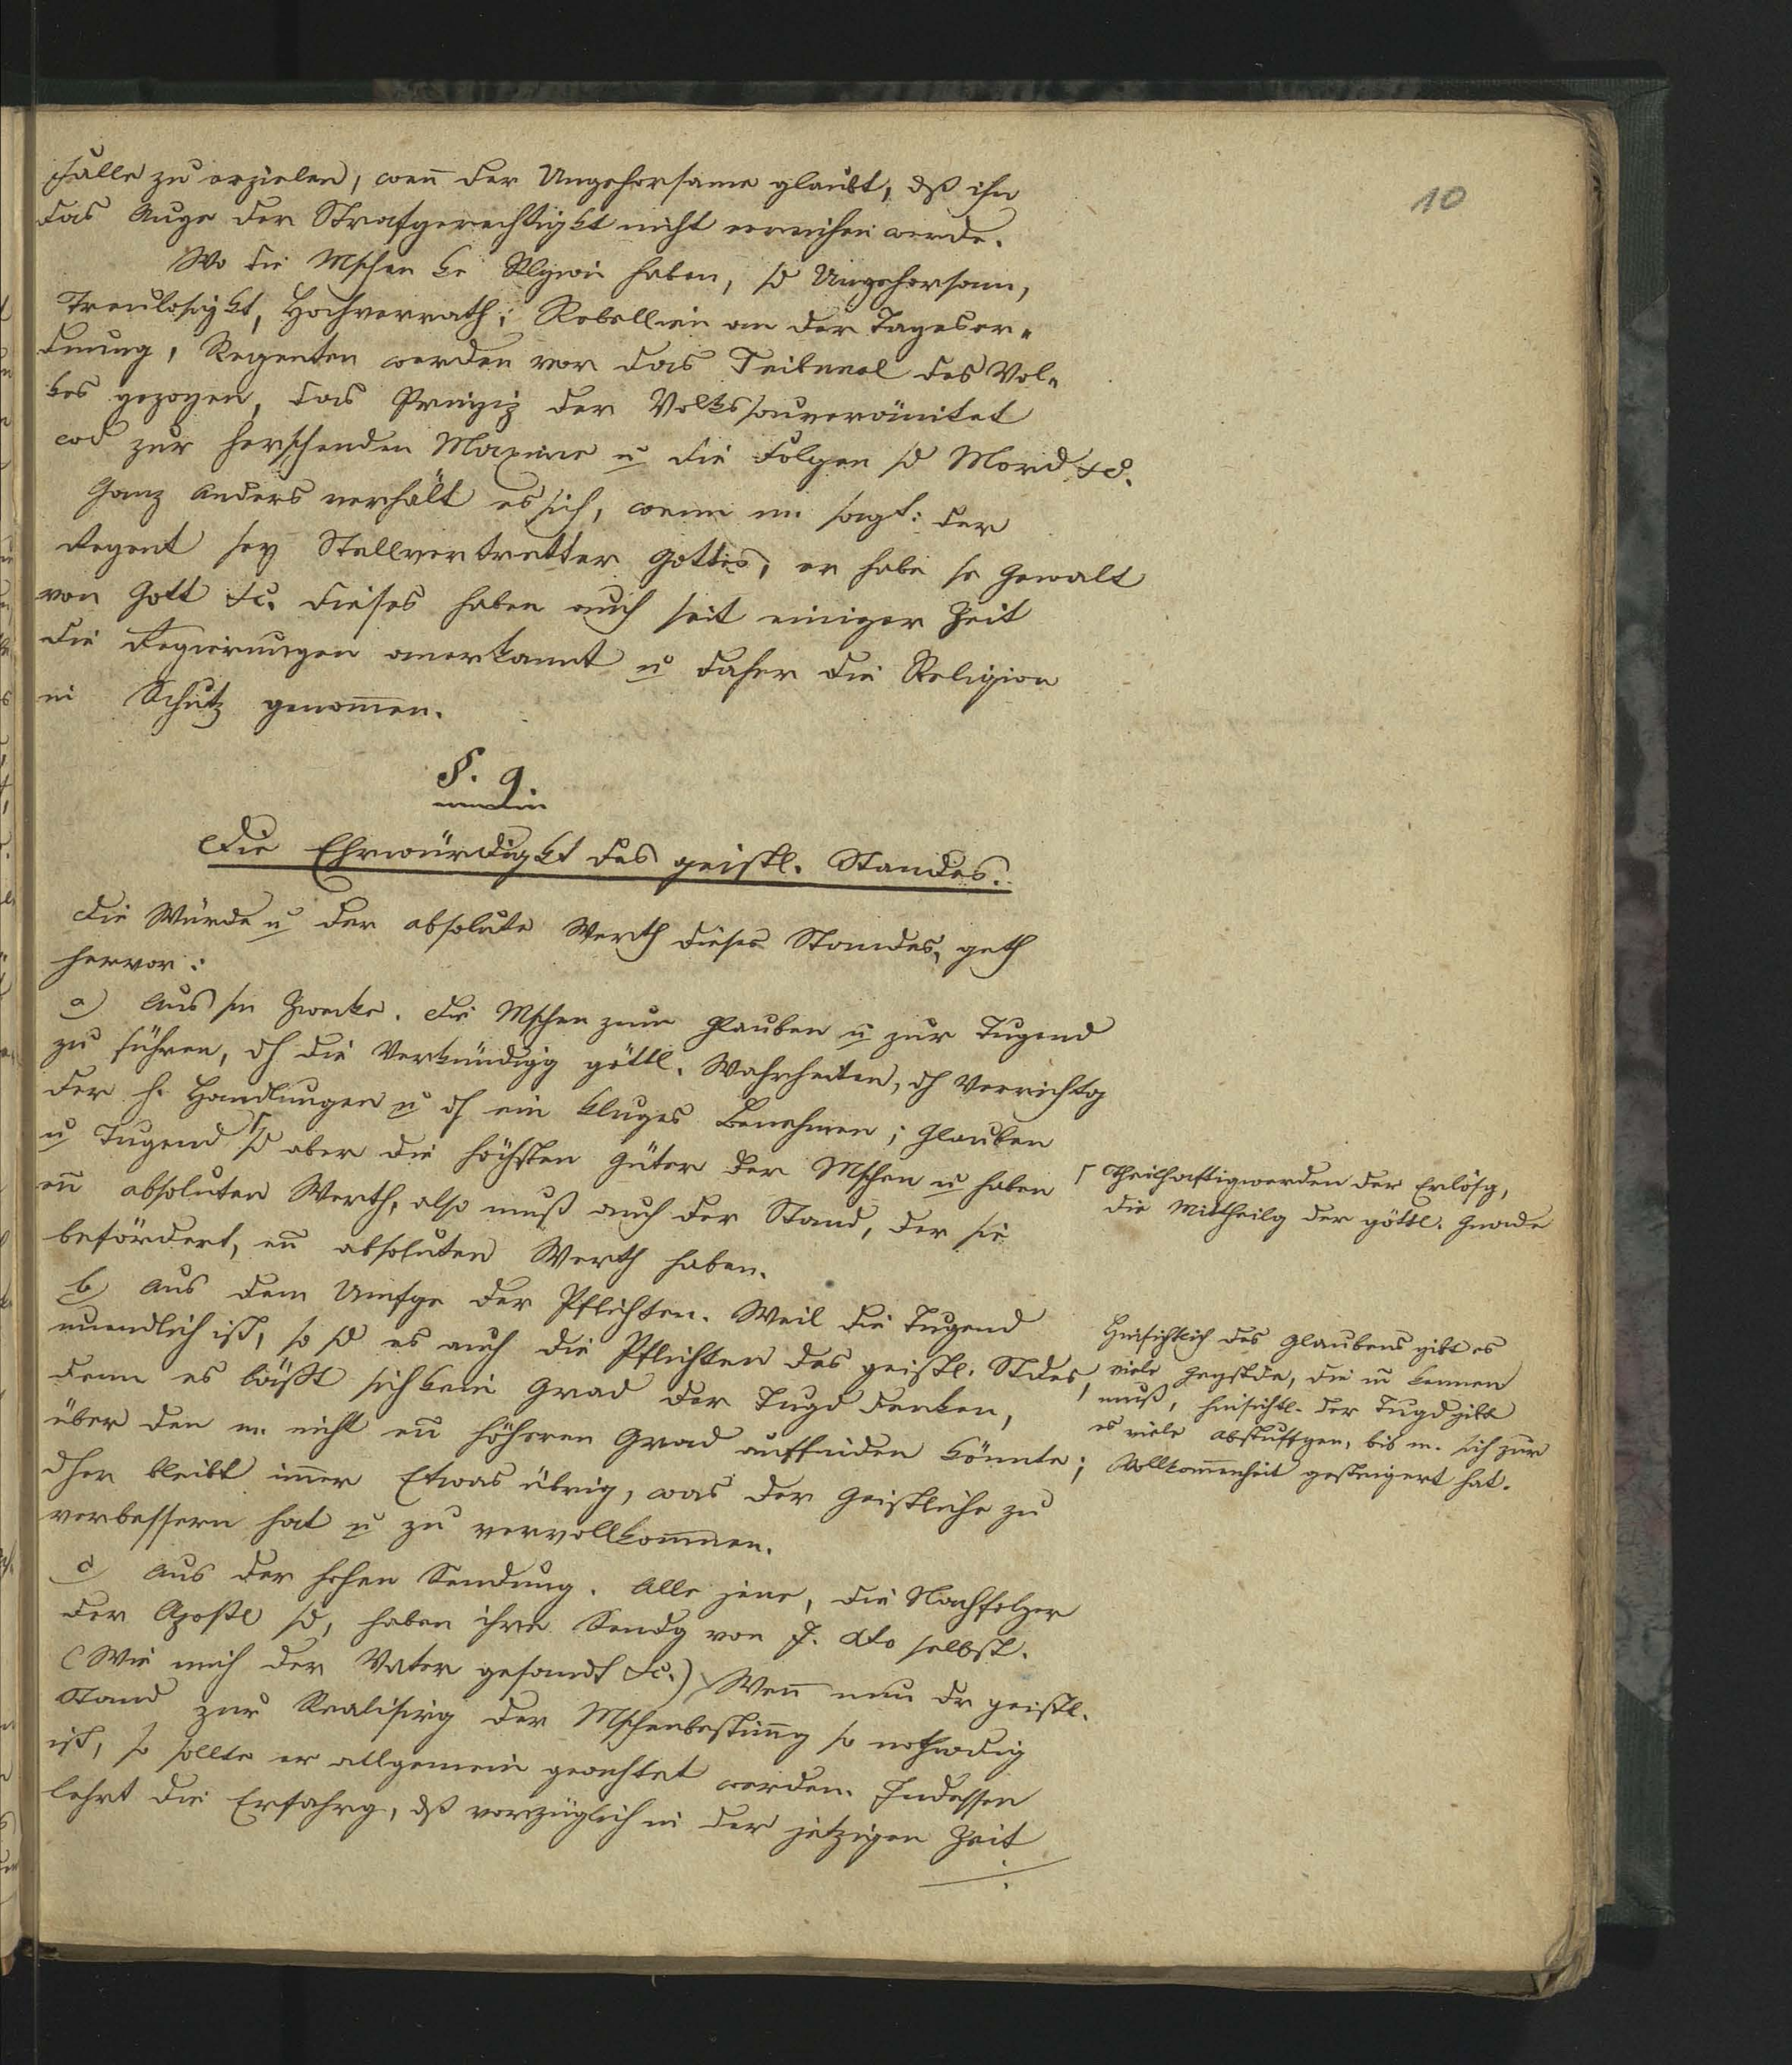 10
Falle zu erzielen, weñ der Ungehorsame glaubt, dß ihn
das Auge der Strafgerechtigkt nicht erreichen werde.
Wo die Mschen ke Rlgion haben, sd Ungehorsam,
Treulosigkt, Hochverrath, Rebellion an der Tagesor-
dnung, Regenten werden vor das Tribunal des Vol-
kes gezogen, das Prinzip der Volkssouveränitet
wd zur herschenden Maxime u die Folgen sd Mord &c.
Ganz anders verhält es sich, wenn m. sagt: der
Regent sey Stellvertretter Gottes, er habe se Gewalt
von Gott &c. dieses haben auch seit einiger Zeit
die Regierungen anerkannt u daher die Religion
in Schutz genom̄en.
§. 9.
Die Ehrwürdigkt des geistl. Standes.
Die Würde u der absolute Werth dieses Standes, geth
hervor:
a) Aus sm Zwecke. Die Mschen zum Glauben u zur Tugend
zu führen, dh die Verkündigg göttl. Wahrheiten, dh Verrichtg
der h. Handlungen u dh ein kluges Benehmen; Glauben
u Tugend ⌈ sd aber die höchsten Güter der Mschen u haben
eñ absoluten Werth, also muß auch der Stand, der sie
befördert, eñ absoluten Werth haben.
⌈ Theilhaftigwerden der Erlösg,
die Mittheilg der göttl. Gnade
b) Aus dem Umfge der Pflichten. Weil die Tugend
unendlich ist, so sd es auch die Pflichten des geistl. Stdes,
denn es läßt sich kein Grad der Tugd denken,
über den m. nicht en höheren Grad auffinden könnte;
dher bleibt im̄er Etwas übrig, was der Geistliche zu
verbessern hat u zu vervollkom̄nen.
Hinsichtlich des Glaubens gibt es
viele Gegstde, die m kennen
muß, hinsichtl. der Tugd gibt
es viele Abstuffgen, bis m. sich zur
Vollkom̄enheit gesteigert hat.
c) Aus der hohen Sendung. Alle jene, die Nachfolger
der Apostl sd, haben ihre Sendg von J. Xto selbst.
(Wie mich der Vater gesandt &c.) Weñ nun dr geistl.
Stand zur Realisirg der Mschenbestim̄g so nothwdig
ist, so sollte er allgemein geachtet werden. Indessen
lehrt die Erfahrg, dß vorzüglich in der jetzigen Zeit